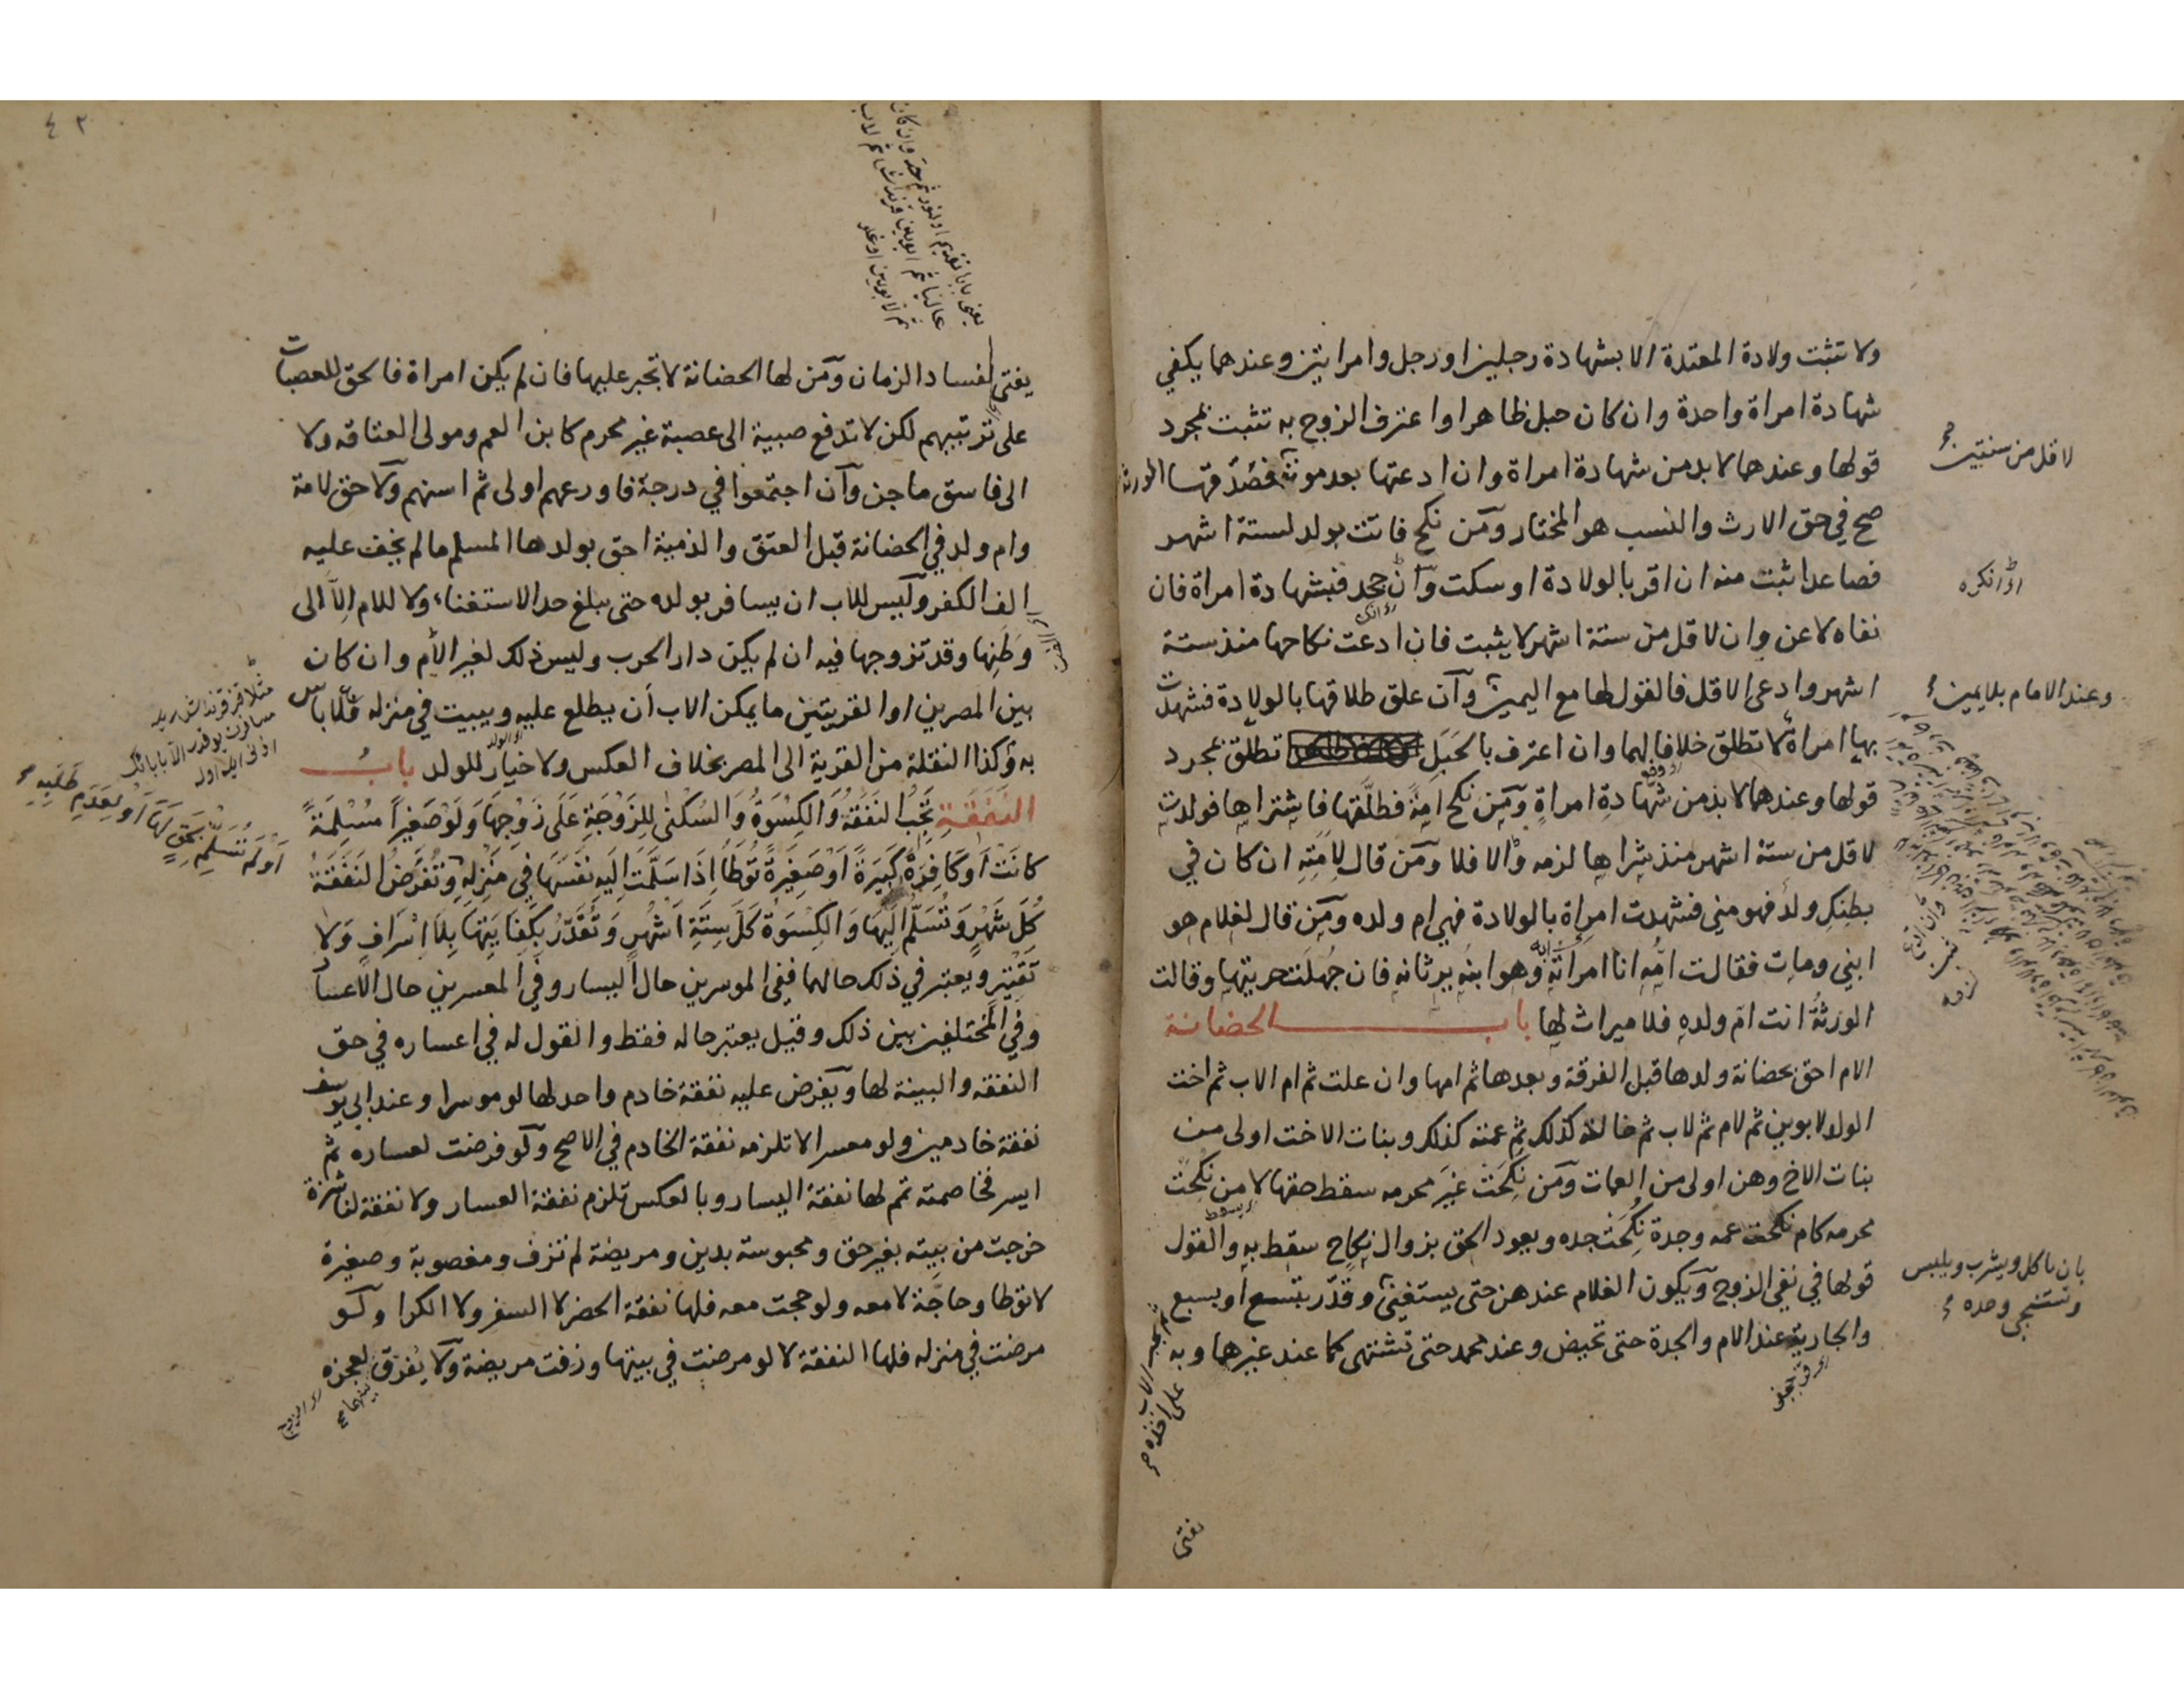 ولا تثبت ولادة المعتدة الا بشهادة رجلين او رجل وامراتين وعندهما يكفي
شهادة امراة واحدة وان كان حبل ظاهر او اعترف الزوج به تثبت بمجرد
قولها وعندهما لا بد من شهادة امراة وان ادعتها بعد موته فصدقها الورثة
صح في حق الارث والنسب هو المختار ومن نكح فاتت بولد لستة اشهر
فصاعدا ثبت منه ان اقر بالولادة او سكت وان جحد فبشهادة امراة فان
نفاه لاعن وان لاقل من ستة اشهر لا يثبت فان ادعت نكاحها منذ ستة
اشهر وادعى الاقل فالقول لها مع اليمين وان علق طلاقها بالولادة فشهدت
بها امراة لا تطلق خلافا لهما وان اعترف بالحَبَلِ تطلق بمجرد
قولها وعندهما لا بد من شهادةِ امراةٍ ومن نكح امةً فطلَّقها فاشتراها فولدت
لاقل من ستة اشهر منذ شراها لزمه والا فلا ومن قال لِاَمَتِهِ ان كان في
بطنِكِ ولدٌ فهو مني فشهدت امراة بالولادة فهي ام ولده ومن قال لغلام هو
ابني ومات فقالت اُمُّه انا امراته وهو ابنُه يرثانه فان جُهلَت حريتها وقالت
الورثةُ انت ام ولدهِ فلا ميراث لها باب الحضانة
الام احق بحضانة ولدها قبل الفرقة وبعدها ثم امها وان علت ثم ام الاب ثم اخت
الولد لابوين ثم لام ثم لاب ثم خالته كذلك ثم عمته كذلك وبنات الاخت اولى من
بنات الاخ وهن اولى من العمات ومن نكَحَت غيَر محرمه سقط حقها لا من نكحَت
محرمه كام نكحت عمه وجدة نكَحَت جده ويعود الحق بزوال نكاح سقط به والقول
قولها في نفي الزوج ويكون الغلام عندهن حتى يستغني وقدّر بتسع او بسبع
والجارية عند الام والجدة حتى تحيض وعند محمد حتى تشتهى كما عند غيرهما وبه
لاقل من سنتين
اذا نكره
وعند الامام بلا يمين
بان ياكل ويشرب ويلبس
ويستنجي وحده
يفتى
٤٢
يفتى لفساد الزمان ومن لها الحضانة لا تجبر عليها فان لم يكن امراة فالحق للعصبات
على ترتيبهم لكن لا تدفع صبية الى عصبة غير محرم كابن العم ومولى العتاقه ولا
الى فاسق ماجن وان اجتمعوا في درجة فاورعهم اولى ثم اسنهم ولا حق لامة
وام ولد في الحضانة قبل العتق والذمية احق بولدها المسلم ما لم يخف عليه
الف الكفر وليس للاب ان يسافر بولده حتى يبلغ حد الاستغناء ولا للام اِلّا الى
وَطَنِها وقد تزوجها فيه ان لم يكن دار الحرب وليس ذلك لغير الأم وان كان
بين المصرين او القريتين ما يمكن الاب أن يطلع عليه ويبيت في منزله فلا باس
به وكذا النقلة من القرية الى المصر بخلاف العكس ولا خيار للولد بابُ
النَفَقَةِ تَجِبُ النَفَقَةُ وَالكِسْوَةُ وَالسُكْنٰى لِلزَوْجَةِ عَلَى زَوْجِهَا وَلَوْ صَغِيراً مُسْلِمَةً
كانَتْ اَوْ كَافِرَةً كَبِيَرَةً اَوْ صَغِيَرةً تُوطَأُ اِذَا سَلَّمَت اِلَيهِ نَفْسَهَا فِي مَنْزِلِهِ وَتُفْرَضُ النَفَقَةُ
كُلَّ شَهْرٍ وَتُسَلَّمُ اِلَيهَا وَالكِسْوَةُ كُلَّ سِتَّةِ اَشْهُرٍ وَتُقَدَّرُ بِكِفَايَتِهَا بِلَا اِسْرَافٍ وَلَا
تَقْتِيرٍ ويعتبر في ذلك حالهما ففي الموسرين حال اليسار وفي المعسرين حال الاعسار
وفي المختلفين بين ذلك وقيل يعتبر حاله فقط والقول له في اعساره في حق
النفقه والبينة لها ويفرض عليه نفقة خادم واحد لها لو موسرا وعند ابي يوسف
نفقة خادمين ولو معسرا لا تلزمه نفقة الخادم في الاصح ولو فرضت لعساره ثم
ايسر فخاصمته تمم لها نفقة اليسار وبالعكس تلزم نفقة العسار ولا نفقة لناشزة
خرجت من بيته بغير حق ومحبوسة بدين ومريضة لم تزف ومغصوبة وصغيرة
لا توطا وحاجّة لا معه ولو حجت معه فلها نفقة الحضر لا السفر ولا الكرا ولو
مرضت في منزله فلها النفقة لا لو مرضت في بيتها وزفت مريضة ولا يُفرق لعجزه
اَوْ لَمْ تُسَلِّمْ بِحَقٍّ لَهَا اَوْ لِعَدَمِ طَلَبِهِ